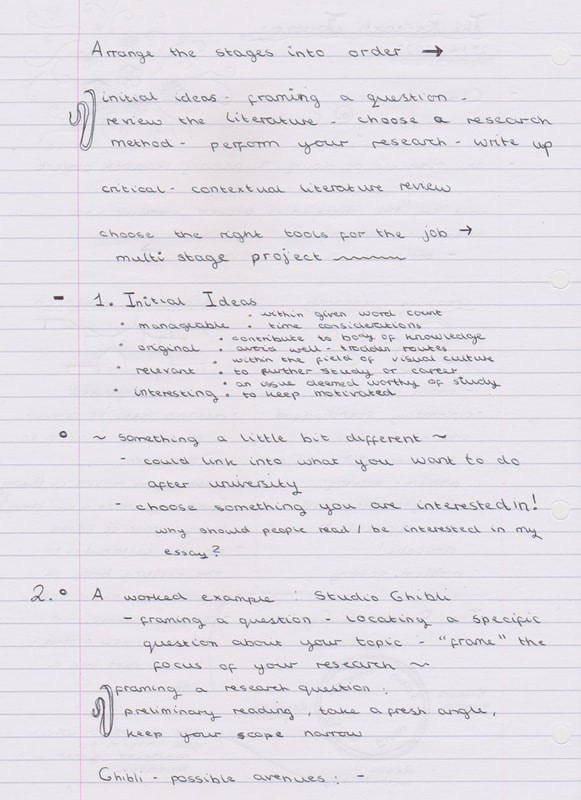 Arrange the stages into order →
initial ideas - framing a question -
review the literature - choose a research
method - perform your research - write up
critical - contextual literature review
choose the right tools for the job →
multi stage project
- 1. Initial Ideas
• within given word count
• manageable • time considerations
• contribute to body of knowledge
• original • avoid well-trodden routes
• within the field of visual culture
• relevant • to further study or career
• an issue deemed worthy of study
• interesting • to keep motivated
~ something a little bit different ~
- could link into what you want to do
after university
- choose something you are interested in!
why should people read / be interested in my
essay?
2. A worked example : Studio Ghibli
- framing a question - locating a specific
question about your topic - "frame" the
focus of your research ~
framing a research question :
preliminary reading, take a fresh angle,
keep your scope narrow
Ghibli - possible avenues : -